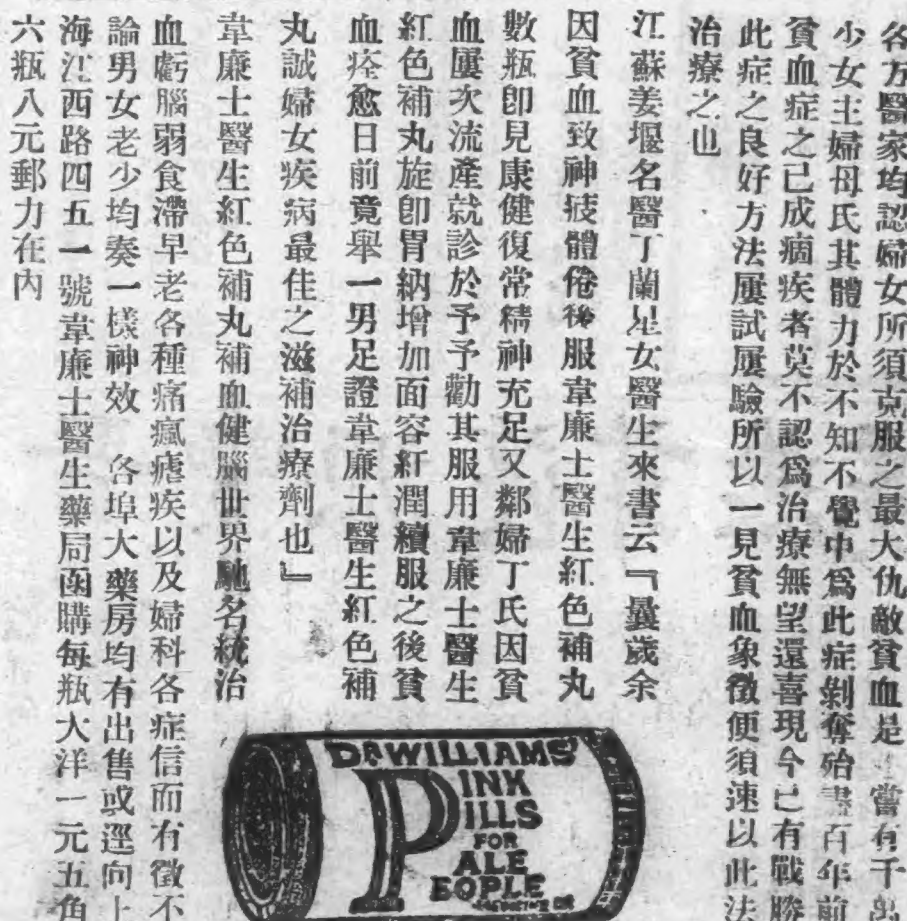 各方醫家均認婦女所須克服之最大仇敵貧血是 嘗有千萬
少女主婦母氏其體力於不知不覺中爲此症剝奪殆盡百年前
貧血症之已成痼疾者莫不認爲治療無望還喜現今已有戰勝
此症之良好方法屢試屢驗所以一見貧血象徵便須速以此法
治療之也
江蘇姜堰名醫丁蘭星女醫生來書云『曩歲余
因貧血致神疲體倦後服韋廉士醫生紅色補丸
數瓶卽見康健復常精神充足又鄰婦丁氏因貧
血屢次流產就診於予予勸其服用韋廉士醫生
紅色補丸旋卽胃納增加面容紅潤續服之後貧
血痊愈日前竟舉一男足證韋廉士醫生紅色補
丸誠婦女疾病最佳之滋補治療劑也』
韋廉士醫生紅色補丸補血健腦世界馳名統治
血虧腦弱食滯早老各種痛瘋瘧疾以及婦科各症信而有徵不
論男女老少均奏一樣神效 各埠大藥房均有出售或逕向上
海江西路四五一號韋廉士醫生藥局函購每瓶大洋一元五角
六瓶八元郵力在內
DR WILLIAMS'
PINK
PILLS
FOR
PALE
PEOPLE